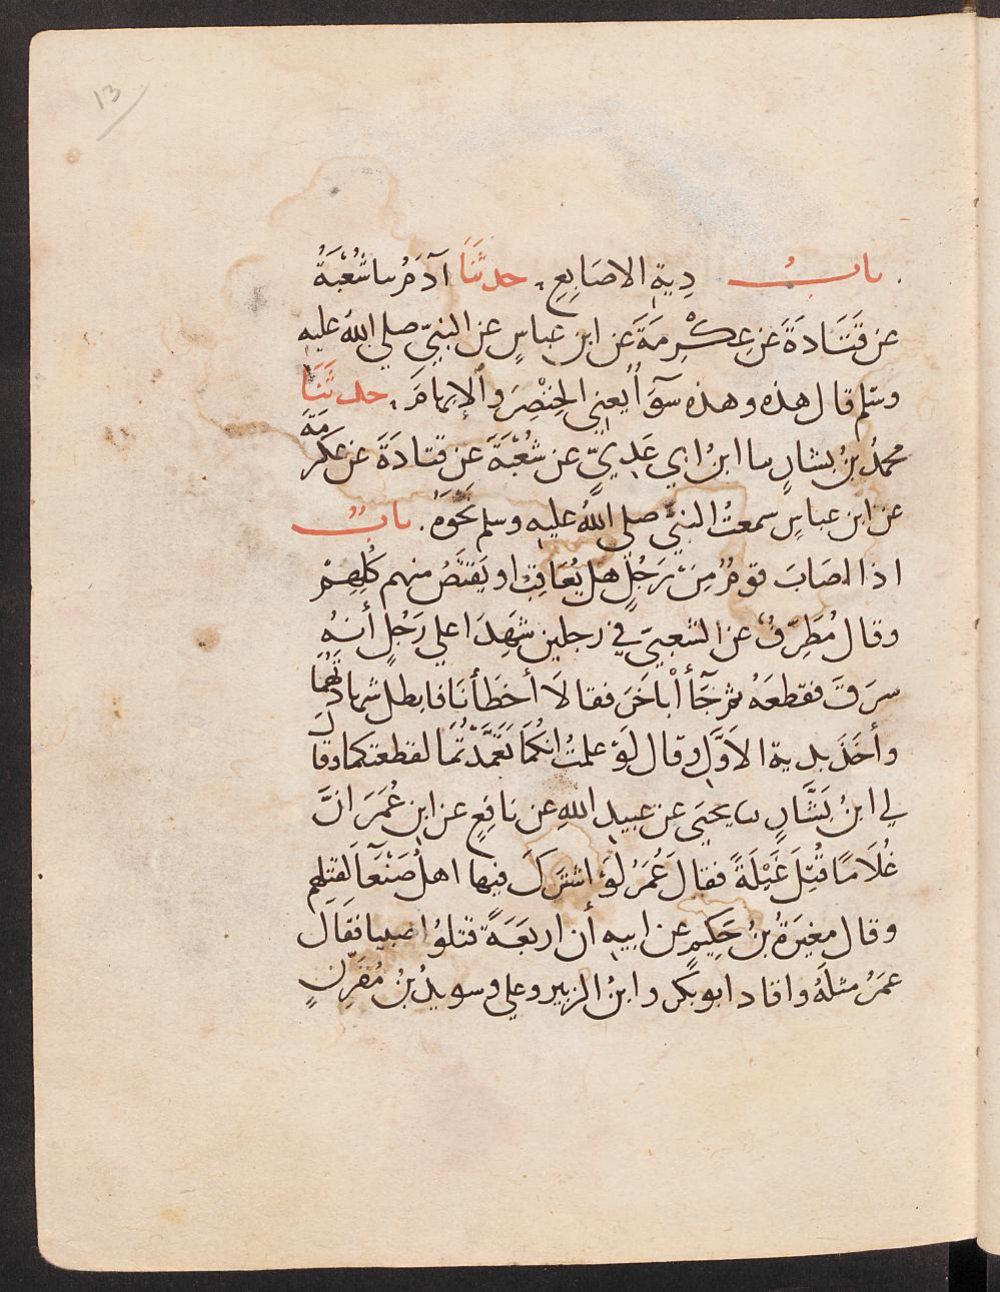 13
باب دِية الاصَابِعِ . حدثَنَا آدَمُ سا شُعْبَةُ
عن قَتَادَةَ عن عِكْرِمَةَ عن ابن عباسٍ عن النبيّ صلي الله عليه
وسلم قال هذه وهذه سوَآ يعني الخِنْصِرَ والإبهامَ . حدثَنَا
محمدُ بنُ بشارٍ سا ابنُ ابي عَدِيّ عن شُعْبَةَ عن قتادَةَ عن عكرمَةَ
عن ابن عباسٍ سمعتُ النبيّ صلي اللهُ عليه وسلم نحْوَهُ . بابٌ
اذا اصَابَ قومٌ مِنْ رَجُلٍ هل يُعَاقِبُ او يَقْتَصُّ منهم كُلِهِمْ
وقال مُطَرِّفٌ عن الشعبيّ في رجلين شَهِدَا علي رَجُلٍ أنهُ
سرَقَ فقطعَهُ ثم جَآأ بأخَرَ فقالَا أخطَأنَا فابطل شهادتهُما
وأخَذَ بدية الاَوَّلِ وقال لَوْ علمتُ انكُمَا تَعَمَّدْتُمَا لقطعتكما وقالَ
لي ابنُ بَشَّارٍ سا يحيَى عن عبيد اللهِ عن نافِعٍ عن ابنِ عُمَرَ انَّ
غُلَامًا قُتِلَ غَيْلَةً فقالَ عُمَرُ لَوْ اشترَكَ فيها اهلُ صَنْعَآ لَقتلهم
وقال مغيرَةُ بنُ حَكِيمٍ عن ابيه أن اربعَةً قتلوُا صبيا فقَالَ
عمَرُ مثلَهُ واقاد ابو بكر وابنُ الزبير وعلي وسويدُ بنُ مُقَرِّنٍ